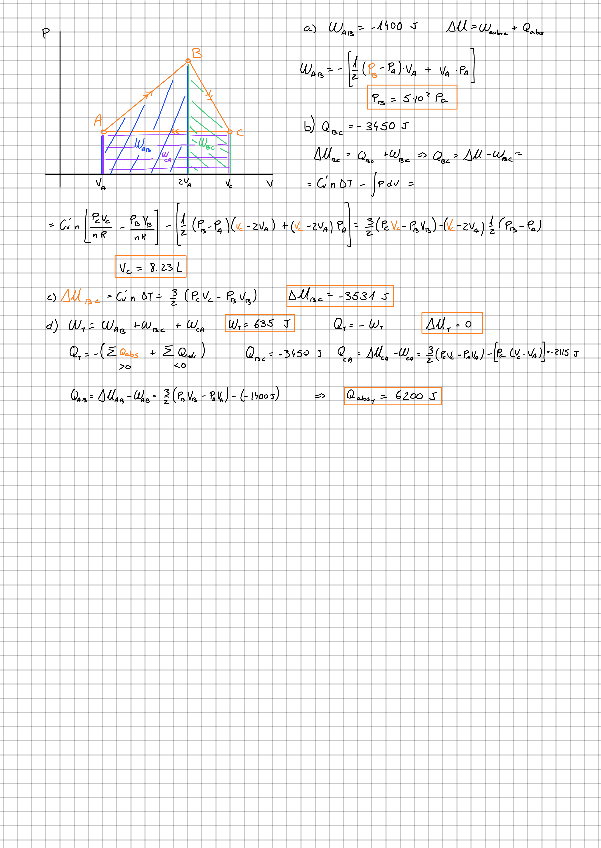 P
A
B
C
W_AB
W_CA
W_BC
V_A
2V_A
V_C
V
a) W_AB = -1400 J   ΔU = W_subie + Q_abs
W_AB = -[1/2 (P_B - P_A)·V_A + V_A·P_A]
P_B = 5·10² Pa
b) Q_BC = -3450 J
ΔU_BC = Q_BC + W_BC ⇒ Q_BC = ΔU - W_BC =
= C_v n DT - ∫P dV =
= C_v n [P_C V_C / nR - P_B V_B / nR] - [1/2 (P_B - P_A)(V_C - 2V_A) + (V_C - 2V_A) P_A] = 3/2 (P_C V_C - P_B V_B) - (V_C - 2V_A) 1/2 (P_B - P_A)
V_C = 8.23 L
c) ΔU_BC = C_v n DT = 3/2 (P_C V_C - P_B V_B)   ΔU_BC = -3531 J
d) W_T = W_AB + W_BC + W_CA   W_T = 635 J   Q_T = -W_T   ΔU_T = 0
Q_T = -(Σ Q_abs + Σ Q_ced)   Q_BC = -3450 J   Q_CA = ΔU_CA - W_CA = 3/2 (P_C V_C - P_A V_A) - [P_C (V_C - V_A)] = -2115 J
>0   <0
Q_AB = ΔU_AB - W_AB = 3/2 (P_B V_B - P_A V_A) - (-1400 J)   ⇒   Q_abs, = 6200 J